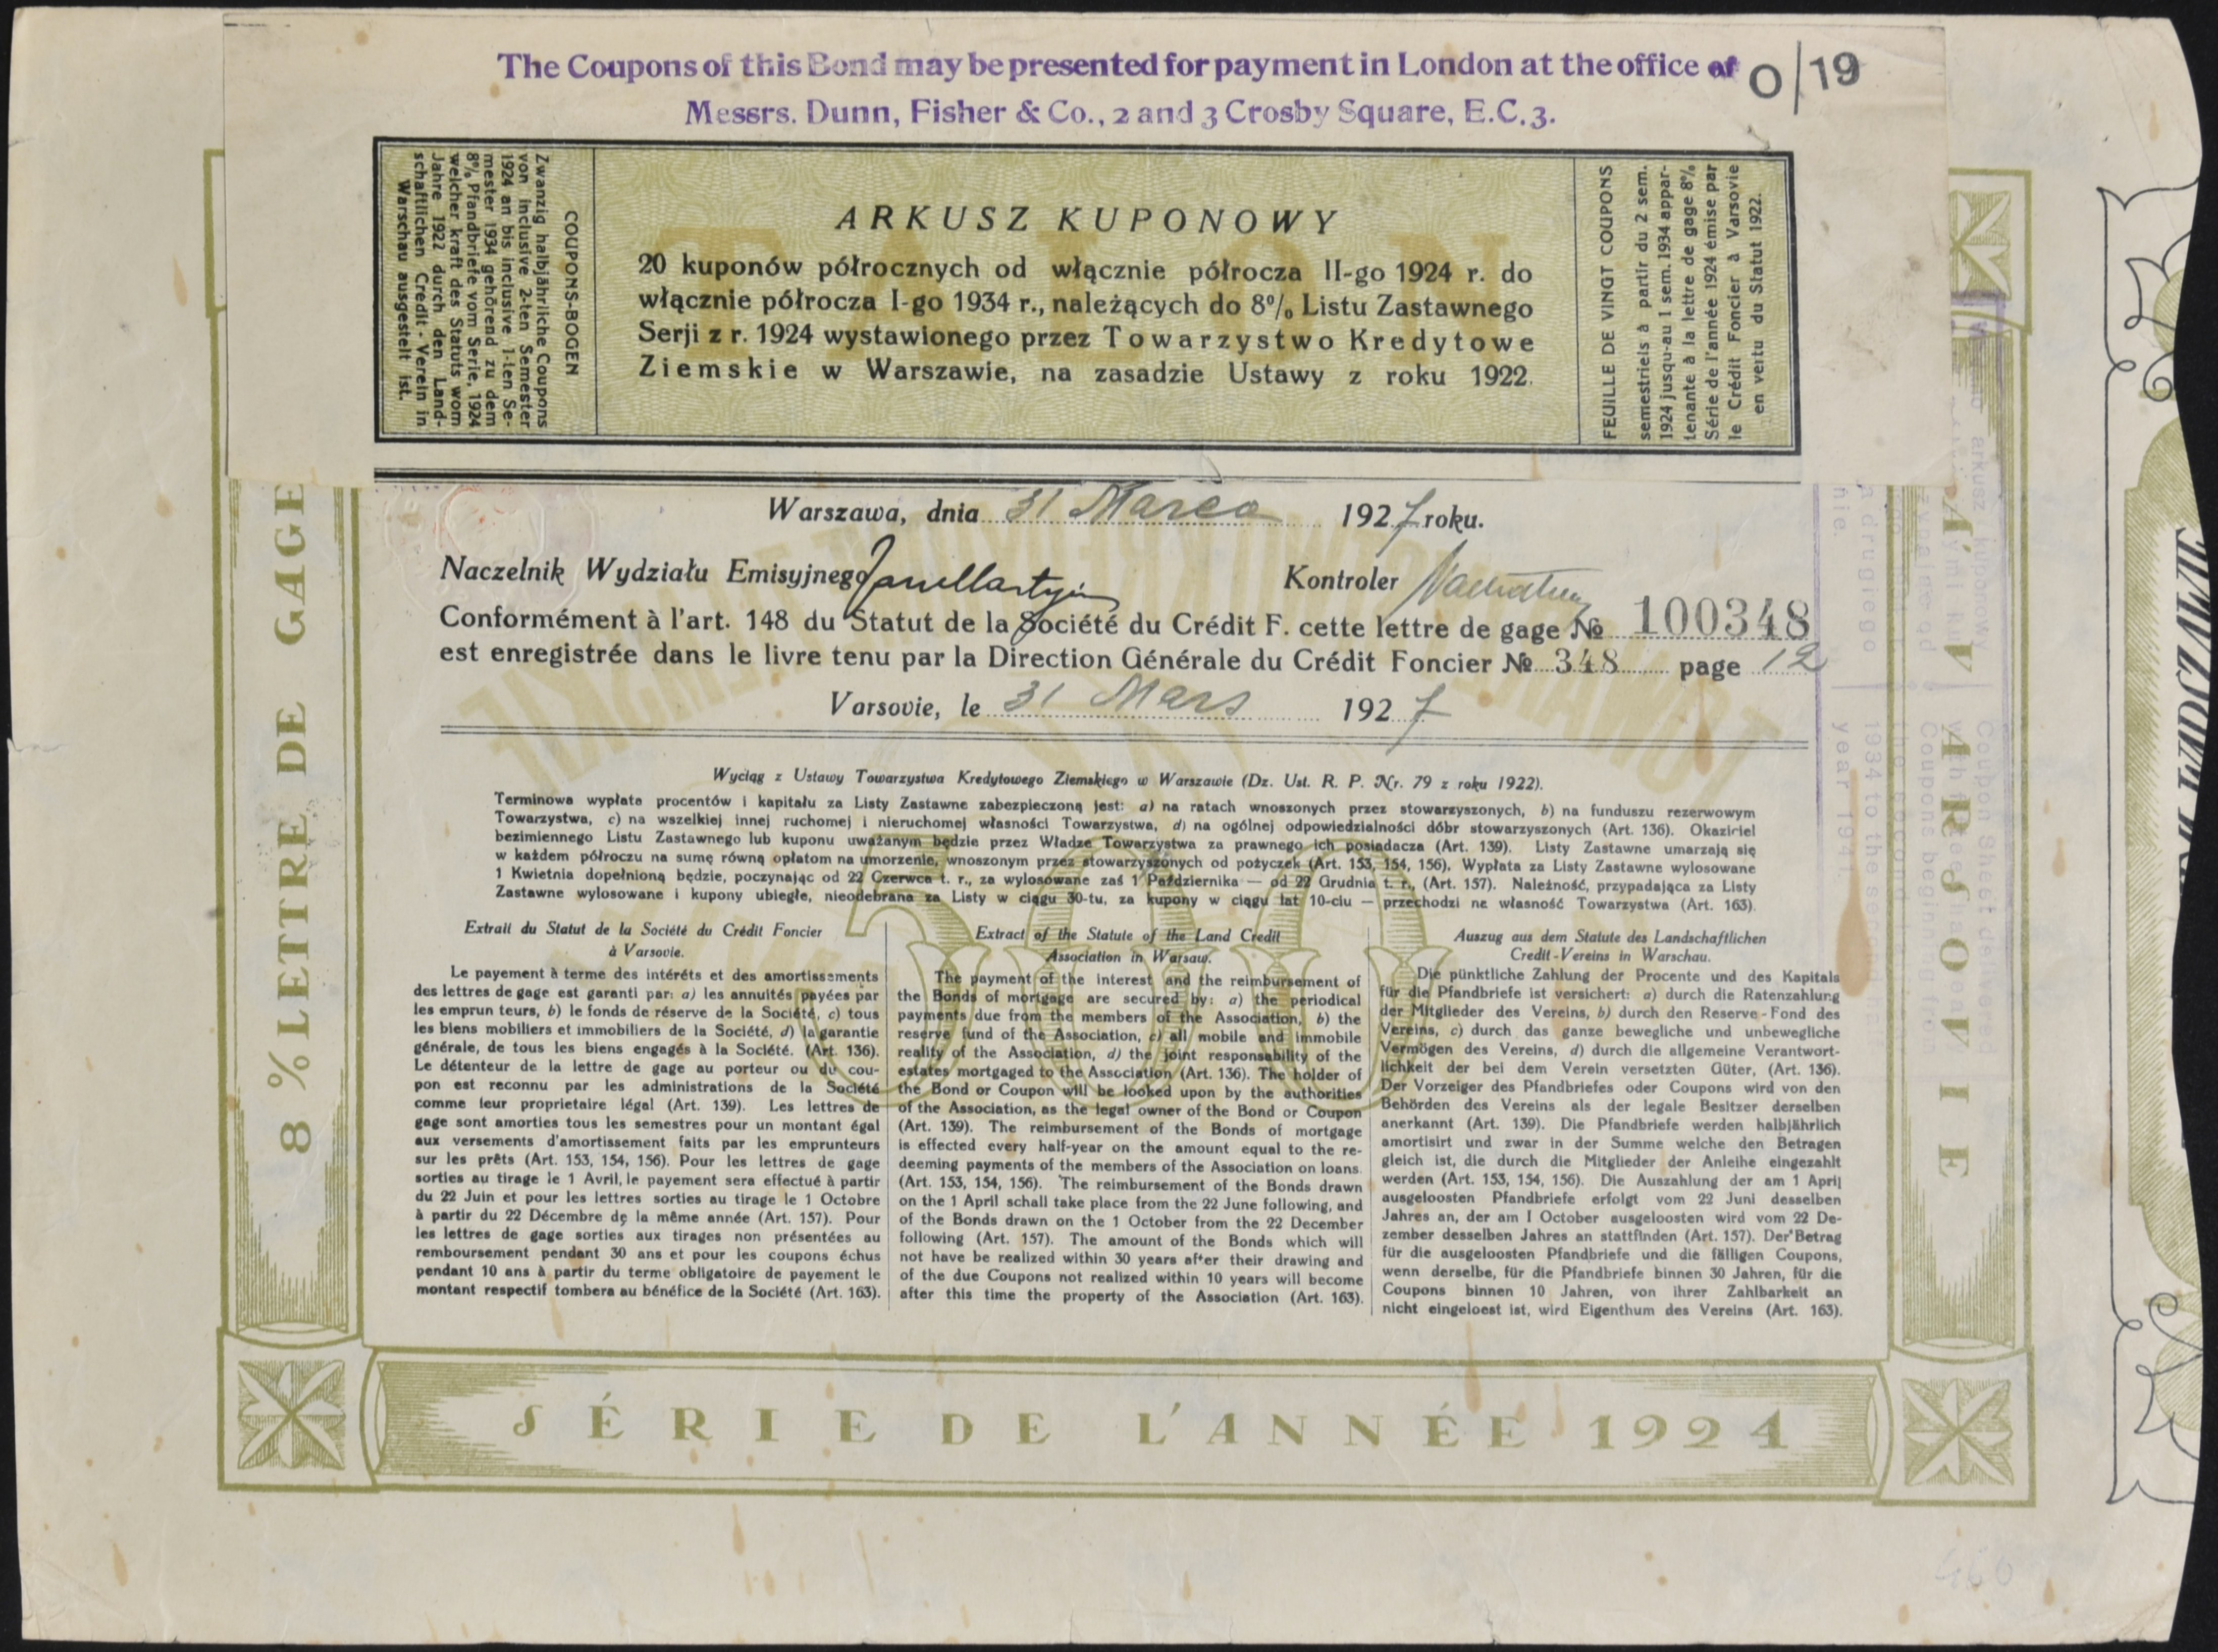 The Coupons of this Bond may be presented for payment in London at the office of
O/19
Messrs. Dunn, Fisher & Co., 2 and 3 Crosby Square, E.C.3.
COUPONS-BOGEN
Zwanzig halbjährliche Coupons
von inclusive 2-ten Semester
1924 an bis inclusive 1-ten Se-
mester 1934 gehörend zu dem
8% Pfandbriefe vom Serie, 1924
welcher kraft des Statuts wom
Jahre 1922 durch den Land-
schaftlichen Credit-Verein in
Warschau ausgestelt ist.
TALON
ARKUSZ KUPONOWY
20 kuponów półrocznych od włącznie półrocza II-go 1924 r. do
włącznie półrocza I-go 1934 r., należących do 8% Listu Zastawnego
Serji z r. 1924 wystawionego przez Towarzystwo Kredytowe
Ziemskie w Warszawie, na zasadzie Ustawy z roku 1922.
FEUILLE DE VINGT COUPONS
semestriels à partir du 2 sem.
1924 jusqu-au 1 sem. 1934 appar-
tenante à la lettre de gage 8%
Série de l'année 1924 émise par
le Crédit Foncier à Varsovie
en vertu du Statut 1922.
Warszawa, dnia 31 Marca 1927 roku.
Naczelnik Wydziału Emisyjnego
Kontroler
Conformément à l'art. 148 du Statut de la Société du Crédit F. cette lettre de gage № 100348
est enregistrée dans le livre tenu par la Direction Générale du Crédit Foncier № 348 page 12
Varsovie, le 31 Mars 1927
Wyciąg z Ustawy Towarzystwa Kredytowego Ziemskiego w Warszawie (Dz. Ust. R. P. Nr. 79 z roku 1922).
Terminowa wypłata procentów i kapitału za Listy Zastawne zabezpieczoną jest: a) na ratach wnoszonych przez stowarzyszonych, b) na funduszu rezerwowym
Towarzystwa, c) na wszelkiej innej ruchomej i nieruchomej własności Towarzystwa, d) na ogólnej odpowiedzialności dóbr stowarzyszonych (Art. 136). Okaziciel
bezimiennego Listu Zastawnego lub kuponu uważanym będzie przez Władze Towarzystwa za prawnego ich posiadacza (Art. 139). Listy Zastawne umarzają się
w każdem półroczu na sumę równą opłatom na umorzenie, wnoszonym przez stowarzyszonych od pożyczek (Art. 153, 154, 156). Wypłata za Listy Zastawne wylosowane
1 Kwietnia dopełnioną będzie, poczynając od 22 Czerwca t. r., za wylosowane zaś 1 Października — od 22 Grudnia t. r., (Art. 157). Należność, przypadająca za Listy
Zastawne wylosowane i kupony ubiegłe, nieodebrana za Listy w ciągu 30-tu, za kupony w ciągu lat 10-ciu — przechodzi na własność Towarzystwa (Art. 163).
500
Extrait du Statut de la Société du Crédit Foncier
à Varsovie.
Le payement à terme des intéréts et des amortissements
des lettres de gage est garanti par: a) les annuités payées par
les emprun teurs, b) le fonds de réserve de la Société, c) tous
les biens mobiliers et immobiliers de la Société, d) la garantie
générale, de tous les biens engagés à la Société. (Art. 136).
Le détenteur de la lettre de gage au porteur ou du cou-
pon est reconnu par les administrations de la Société
comme leur proprietaire légal (Art. 139). Les lettres de
gage sont amorties tous les semestres pour un montant égal
aux versements d'amortissement faits par les emprunteurs
sur les prêts (Art. 153, 154, 156). Pour les lettres de gage
sorties au tirage le 1 Avril, le payement sera effectué à partir
du 22 Juin et pour les lettres sorties au tirage le 1 Octobre
à partir du 22 Décembre de la même année (Art. 157). Pour
les lettres de gage sorties aux tirages non présentées au
remboursement pendant 30 ans et pour les coupons échus
pendant 10 ans à partir du terme obligatoire de payement le
montant respectif tombera au bénéfice de la Société (Art. 163).
Extract of the Statute of the Land Credit
Association in Warsaw.
The payment of the interest and the reimbursement of
the Bonds of mortgage are secured by: a) the periodical
payments due from the members of the Association, b) the
reserve fund of the Association, c) all mobile and immobile
reality of the Association, d) the joint responsability of the
estates mortgaged to the Association (Art. 136). The holder of
the Bond or Coupon will be looked upon by the authorities
of the Association, as the legal owner of the Bond or Coupon
(Art. 139). The reimbursement of the Bonds of mortgage
is effected every half-year on the amount equal to the re-
deeming payments of the members of the Association on loans.
(Art. 153, 154, 156). The reimbursement of the Bonds drawn
on the 1 April schall take place from the 22 June following, and
of the Bonds drawn on the 1 October from the 22 December
following (Art. 157). The amount of the Bonds which will
not have be realized within 30 years after their drawing and
of the due Coupons not realized within 10 years will become
after this time the property of the Association (Art. 163).
Auszug aus dem Statute des Landschaftlichen
Credit-Vereins in Warschau.
Die pünktliche Zahlung der Procente und des Kapitals
für die Pfandbriefe ist versichert: a) durch die Ratenzahlung
der Mitglieder des Vereins, b) durch den Reserve-Fond des
Vereins, c) durch das ganze bewegliche und unbewegliche
Vermögen des Vereins, d) durch die allgemeine Verantwort-
lichkeit der bei dem Verein versetzten Güter, (Art. 136).
Der Vorzeiger des Pfandbriefes oder Coupons wird von den
Behörden des Vereins als der legale Besitzer derselben
anerkannt (Art. 139). Die Pfandbriefe werden halbjährlich
amortisirt und zwar in der Summe welche den Betragen
gleich ist, die durch die Mitglieder der Anleihe eingezahlt
werden (Art. 153, 154, 156). Die Auszahlung der am 1 April
ausgeloosten Pfandbriefe erfolgt vom 22 Juni desselben
Jahres an, der am 1 October ausgeloosten wird vom 22 De-
zember desselben Jahres an stattfinden (Art. 157). Der Betrag
für die ausgeloosten Pfandbriefe und die fälligen Coupons,
wenn derselbe, für die Pfandbriefe binnen 30 Jahren, für die
Coupons binnen 10 Jahren, von ihrer Zahlbarkeit an
nicht eingeloest ist, wird Eigenthum des Vereins (Art. 163).
8 % LETTRE DE GAGE
À VARSOVIE
SÉRIE DE L'ANNÉE 1924